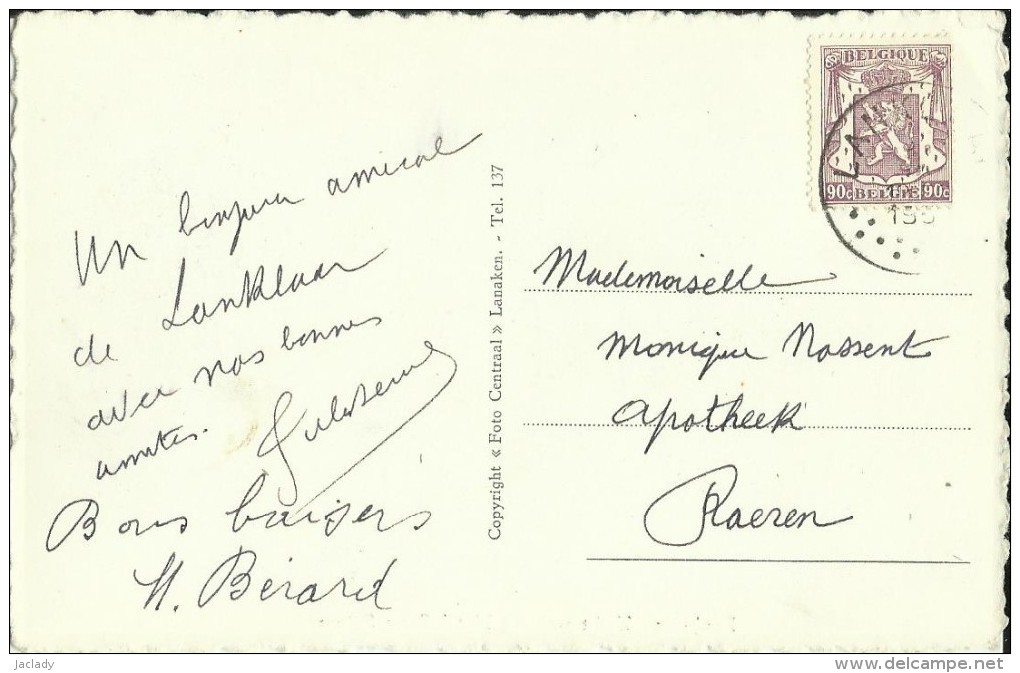 Un bonjour amical
de Lanklaar
avec nos bonnes
amitiés.
Bons baisers
H. Bérard
Copyright « Foto Centraal » Lanaken. - Tel. 137
BELGIQUE
90c BELGIE 90c
LAN
195
Mademoiselle
Monique Nossent
Apotheek
Raeren
jaclady
www.delcampe.net